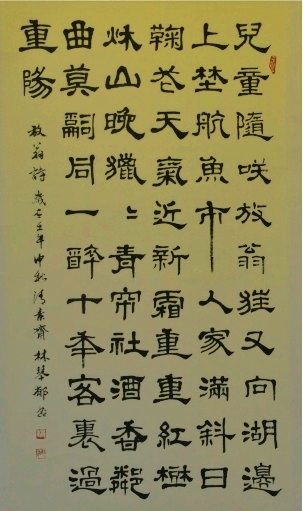 兒童隨咲放翁狂又向湖邊
上埜航魚市人家滿斜日
鞠花天氣近新霜重重紅樹
秌山晚獵〻青帘社酒香鄰
曲莫嗣同一醉十年客裏過
重陽
放翁詩歲在年中秋清素齋林琴